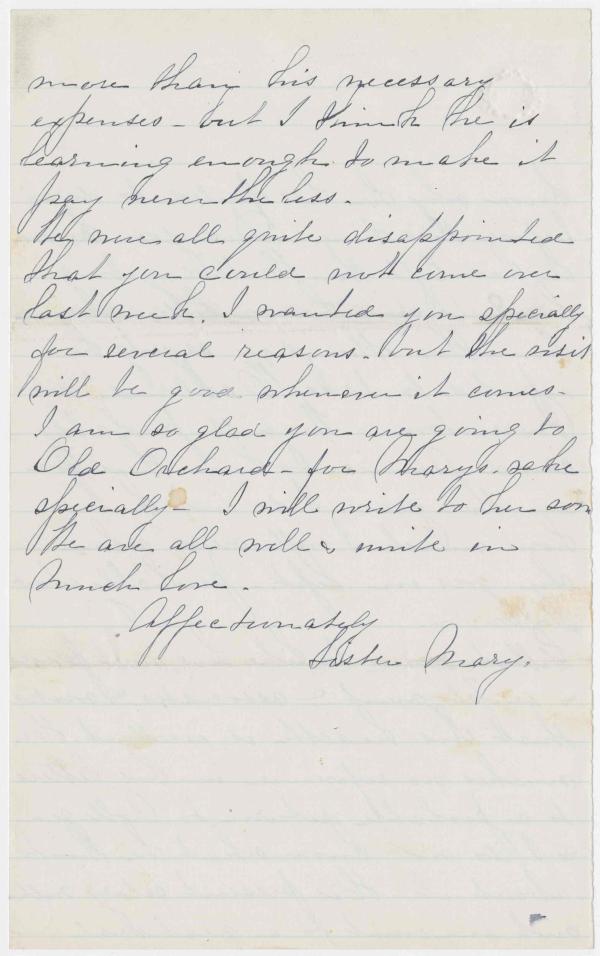 more than his necessary
expenses - but I think he is
learning enough to make it
pay never the less.
We were all quite disappointed
that you could not come over
last week. I wanted you specially
for several reasons. but the visit
will be good whenever it comes -
I am so glad you are going to
Old Orchard - for Marys sake
specially - I will write to her soon
We are all well & unite in
much love.
Affectionately
Sister Mary.